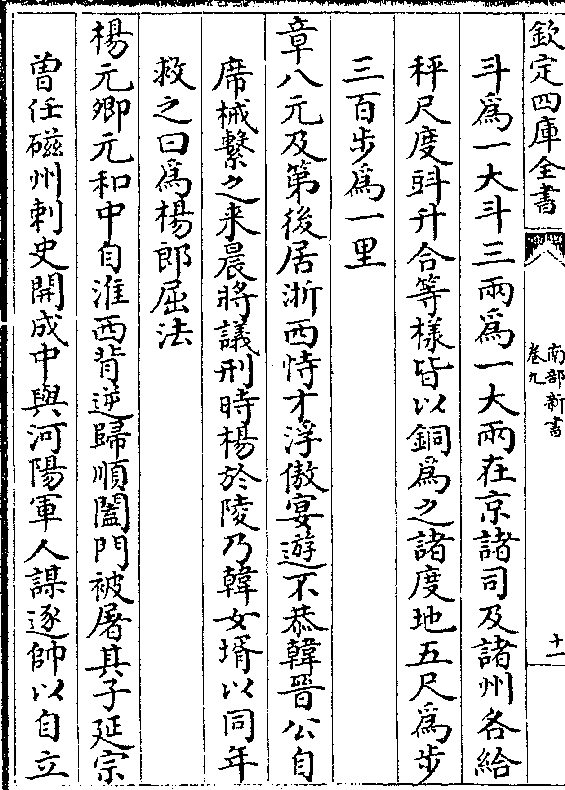 欽定四庫全書
南部新書
卷九
十一
斗為一大斗三兩為一大兩在京諸司及諸州各給
秤尺度㪷升合等樣皆以銅為之諸度地五尺為步
三百步為一里
章八元及第後居浙西恃才浮傲宴遊不恭韓晉公自
席械繫之来晨將議刑時楊於陵乃韓女壻以同年
救之曰為楊郎屈法
楊元卿元和中自淮西背逆歸順闔門被屠其子延宗
曽任磁州刺史開成中與河陽軍人謀逐帥以自立